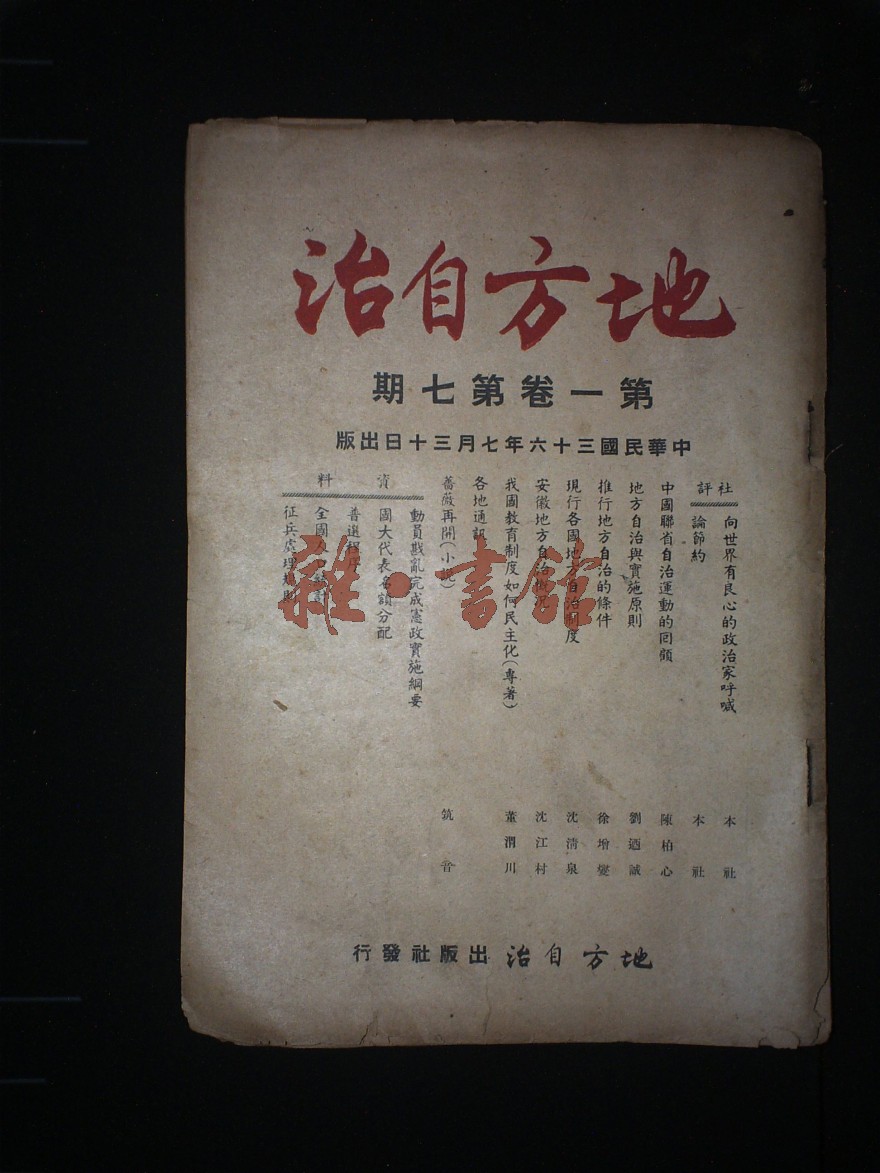 地方自治
第一卷第七期
中華民國三十六年七月三十日出版
社評
向世界有良心的政治家呼喊 本社
論節約 本社
中國聯省自治運動的回顧 陳柏心
地方自治與實施原則 劉迺誠
推行地方自治的條件 徐增燮
現行各國地方自治制度 沈清泉
安徽地方自治概況 沈江村
我國教育制度如何民主化(專著) 董渭川
各地通訊
薔薇再開(小說) 筑音
資料
動員戡亂完成憲政實施綱要
國大代表名額分配
普選程序
全國人口統計
征兵處理規則
地方自治出版社發行
雜·書館